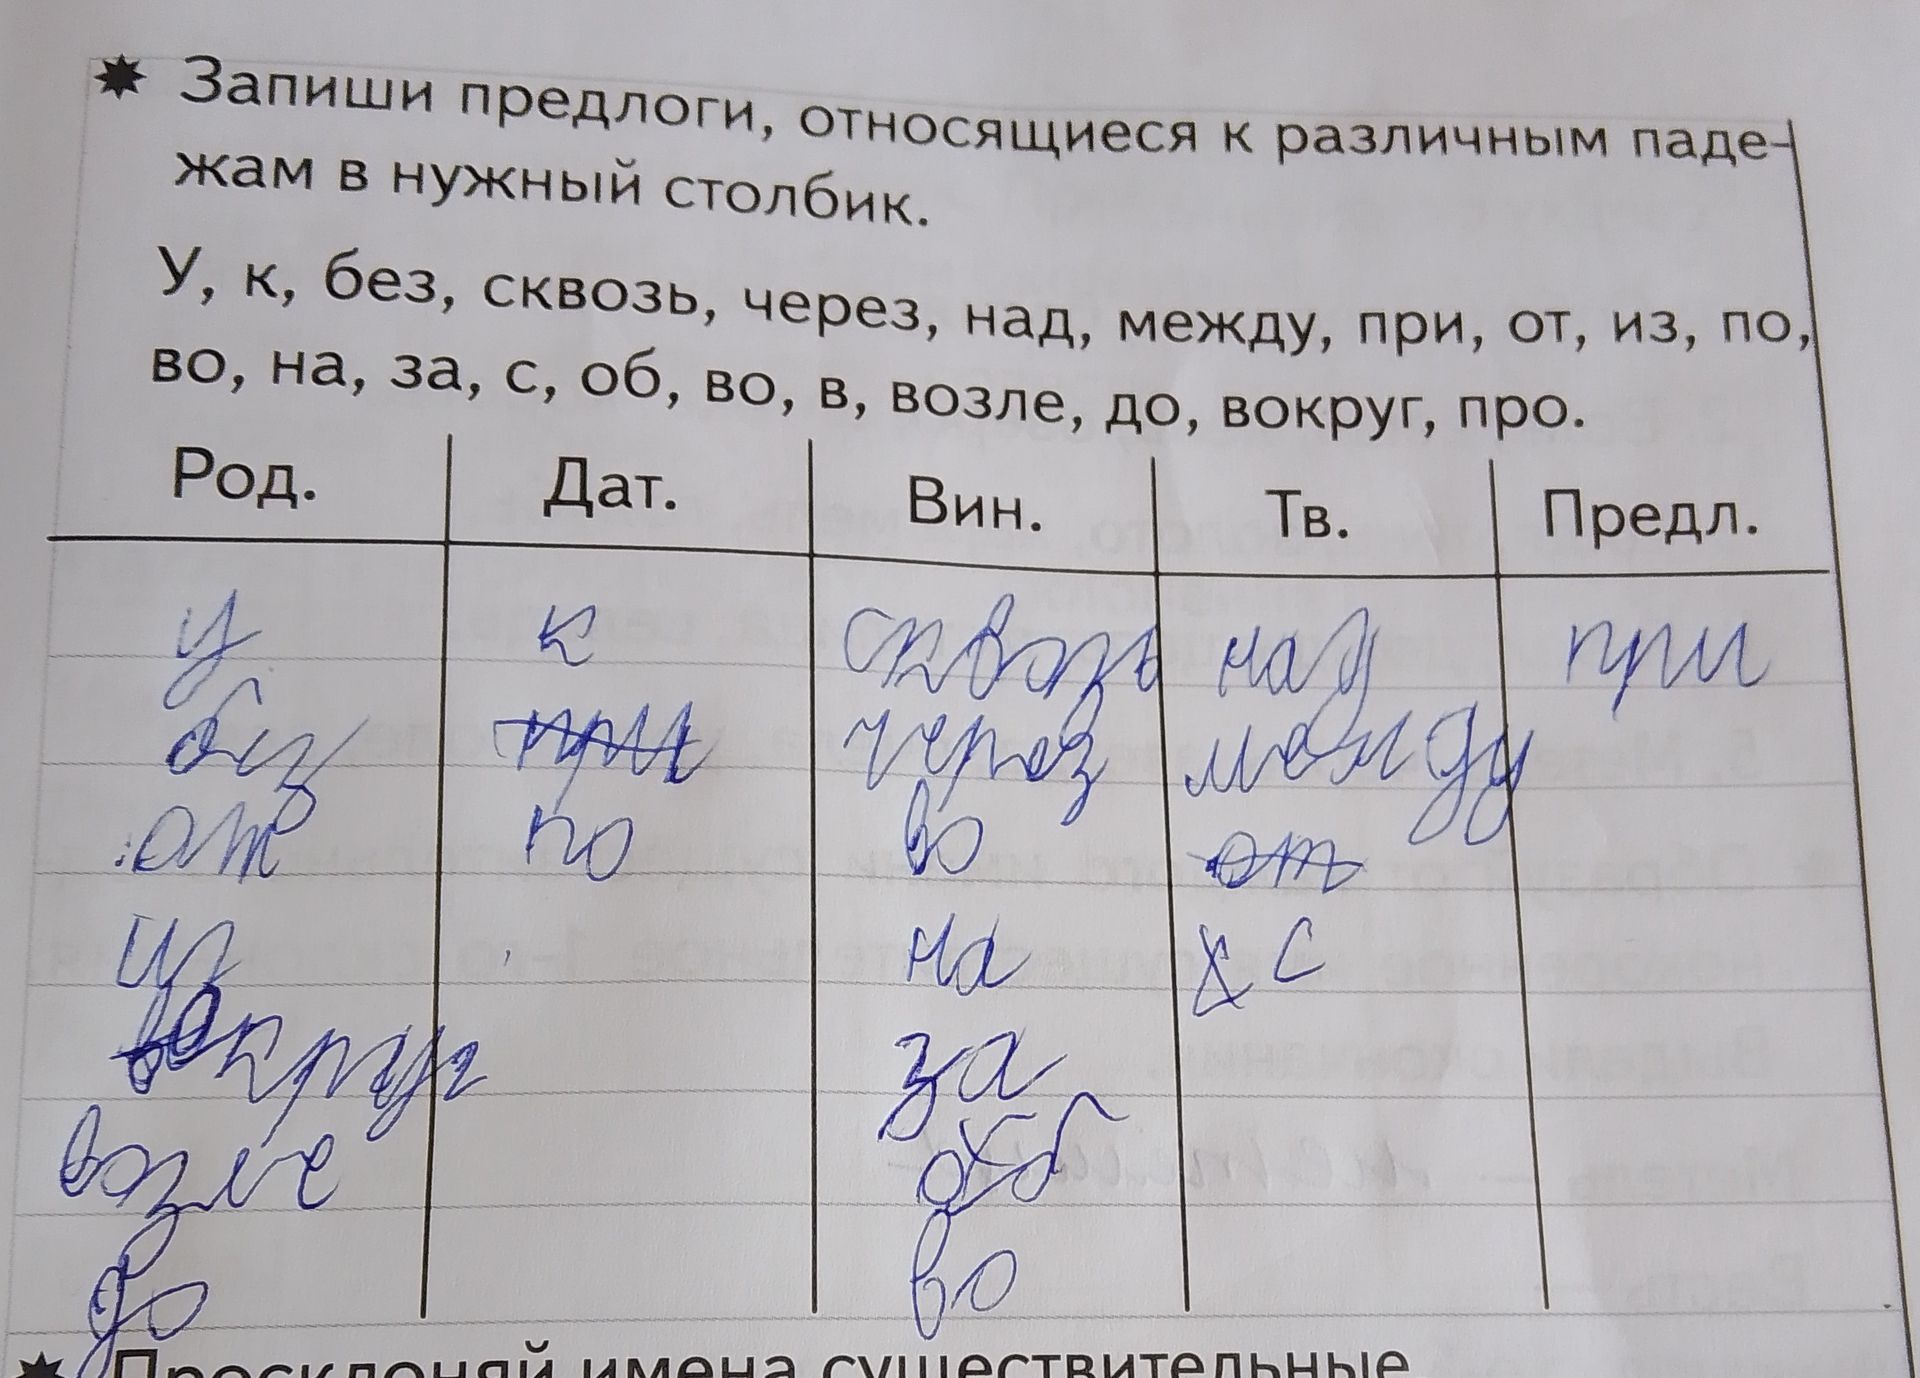 Запиши предлоги, относящиеся к различным паде-
жам в нужный столбик.
У, к, без, сквозь, через, над, между, при, от, из, по,
во, на, за, с, об, во, в, возле, до, вокруг, про.
Род. Дат. Вин. Тв. Предл.
у к сквозь над при
без при через между
от по во от
из на с
вокруг за
возле об
до во
Просклоняй имена существительные